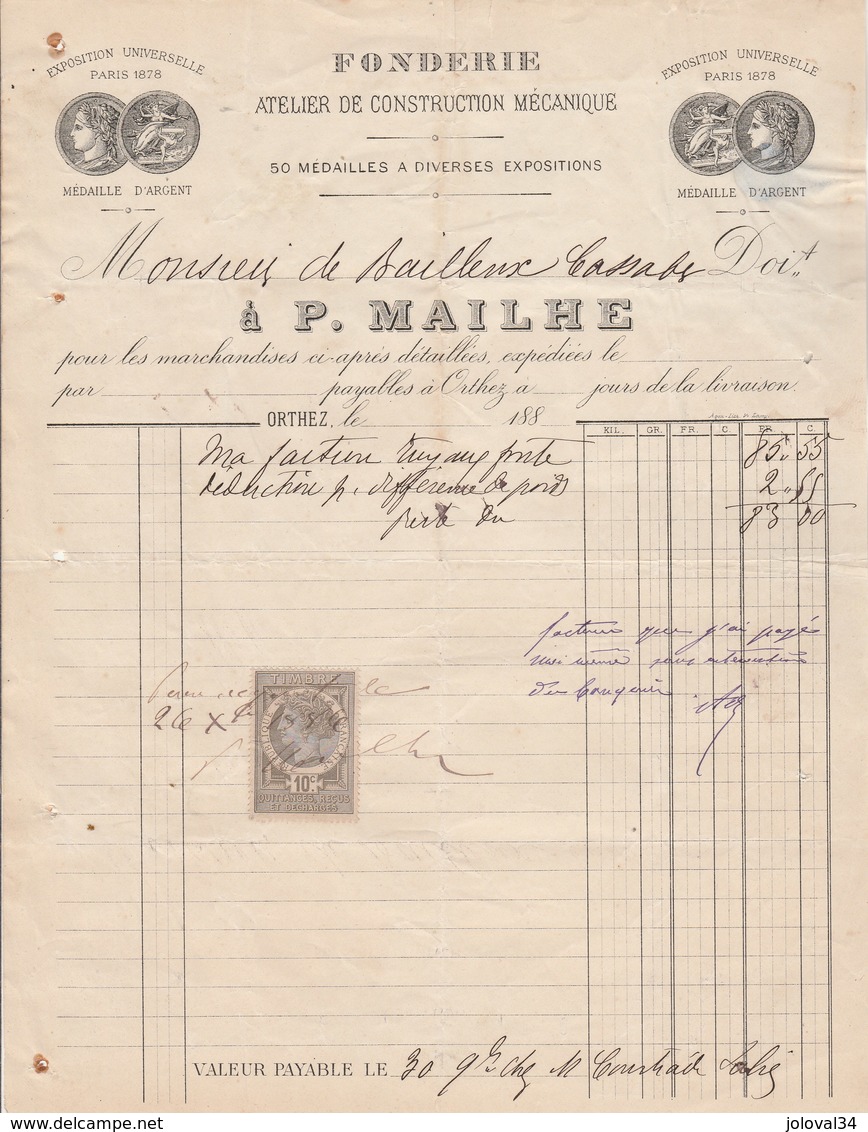 EXPOSITION UNIVERSELLE
PARIS 1878
MÉDAILLE D'ARGENT
FONDERIE
ATELIER DE CONSTRUCTION MÉCANIQUE
50 MÉDAILLES A DIVERSES EXPOSITIONS
EXPOSITION UNIVERSELLE
PARIS 1878
MÉDAILLE D'ARGENT
Monsieur de Bailleux Cassaber Doit
à P. MAILHE
pour les marchandises ci-après détaillées, expédiées le
par payables à Orthez à jours de la livraison.
ORTHEZ, le 188
KIL. GR. FR. C. FR. C.
Ma faction tuyaux fonte 85,55
déduction p. différence de poids 2,55
reste du 83 00
facture que j'ai payé
moi même sans
du
26 Xbre
TIMBRE
RÉPUBLIQUE FRANÇAISE
10c
QUITTANCES, REÇUS
ET DÉCHARGES
VALEUR PAYABLE LE 30 chez M
delcampe.net
joloval34